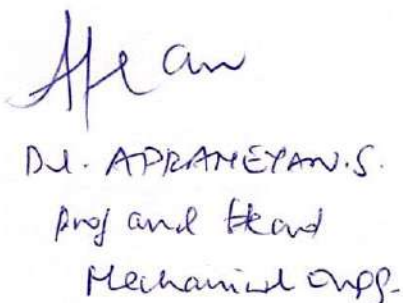 Dr. APRAMEYAN.S.
Prof and Head
Mechanical Engg.